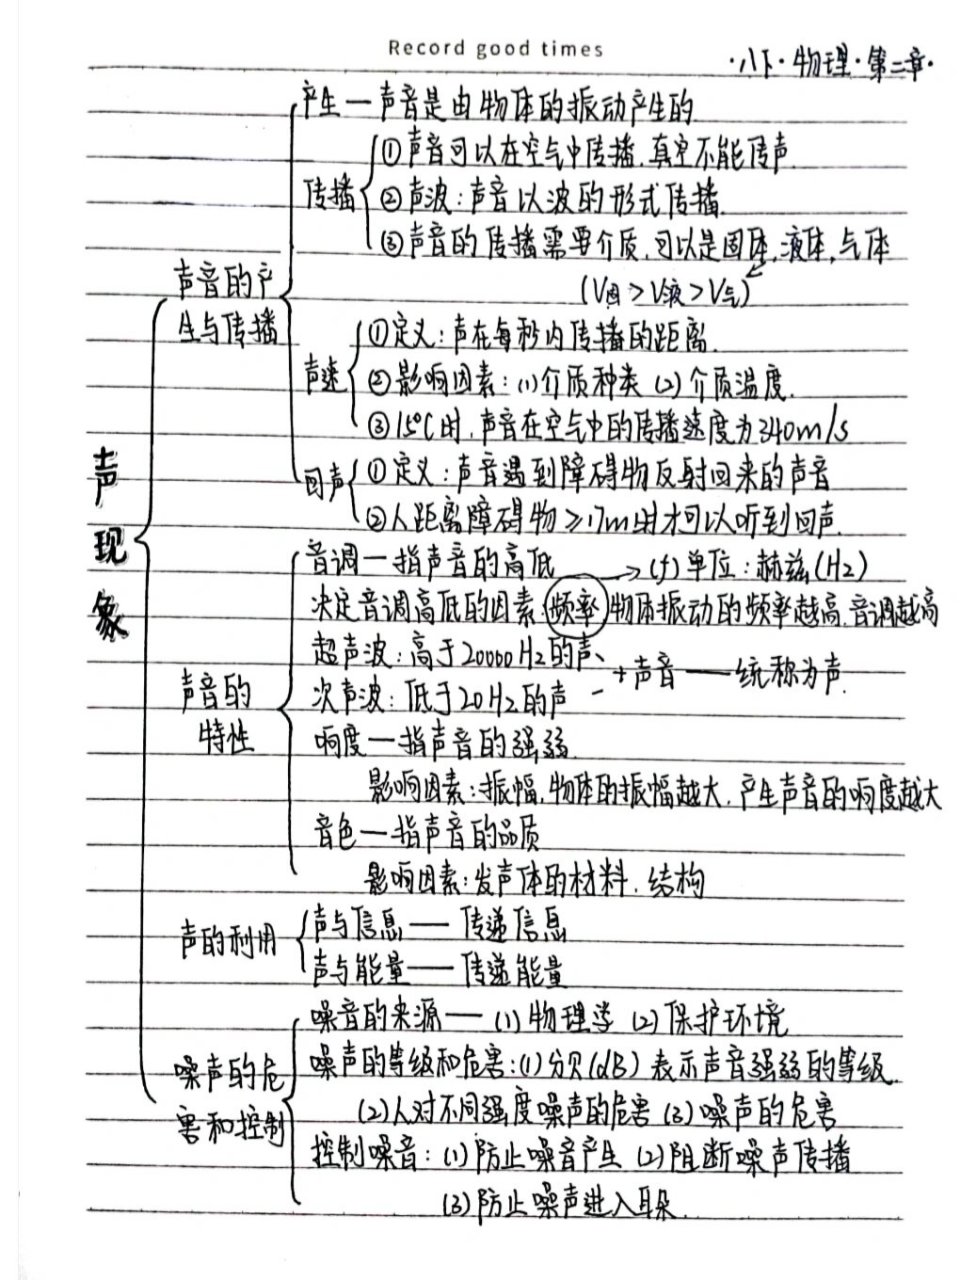 Record good times
·八下·物理·第二章·
产生—声音是由物体的振动产生的
传播
①声音可以在空气中传播.真空不能传声
②声波:声音以波的形式传播.
③声音的传播需要介质,可以是固体,液体,气体
(V固>V液>V气)
声音的产
生与传播
声速
①定义:声在每秒内传播的距离.
②影响因素:(1)介质种类 (2)介质温度.
③15°C时.声音在空气中的传播速度为340m/s
回声
①定义:声音遇到障碍物反射回来的声音
②人距离障碍物≥17m时才可以听到回声.
声现象
音调—指声音的高低
→(f)单位:赫兹(Hz)
决定音调高低的因素:频率 物体振动的频率越高.音调越高
超声波:高于20000Hz的声、
+声音——统称为声.
次声波:低于20Hz的声
声音的
特性
响度—指声音的强弱.
影响因素:振幅.物体的振幅越大.产生声音的响度越大
音色—指声音的品质
影响因素:发声体的材料.结构
声的利用
声与信息——传递信息
声与能量——传递能量
噪音的来源—(1)物理学 (2)保护环境
噪声的危
害和控制
噪声的等级和危害:(1)分贝(dB)表示声音强弱的等级.
(2)人对不同强度噪声的危害 (3)噪声的危害
控制噪音:(1)防止噪音产生 (2)阻断噪声传播
(3)防止噪声进入耳朵.